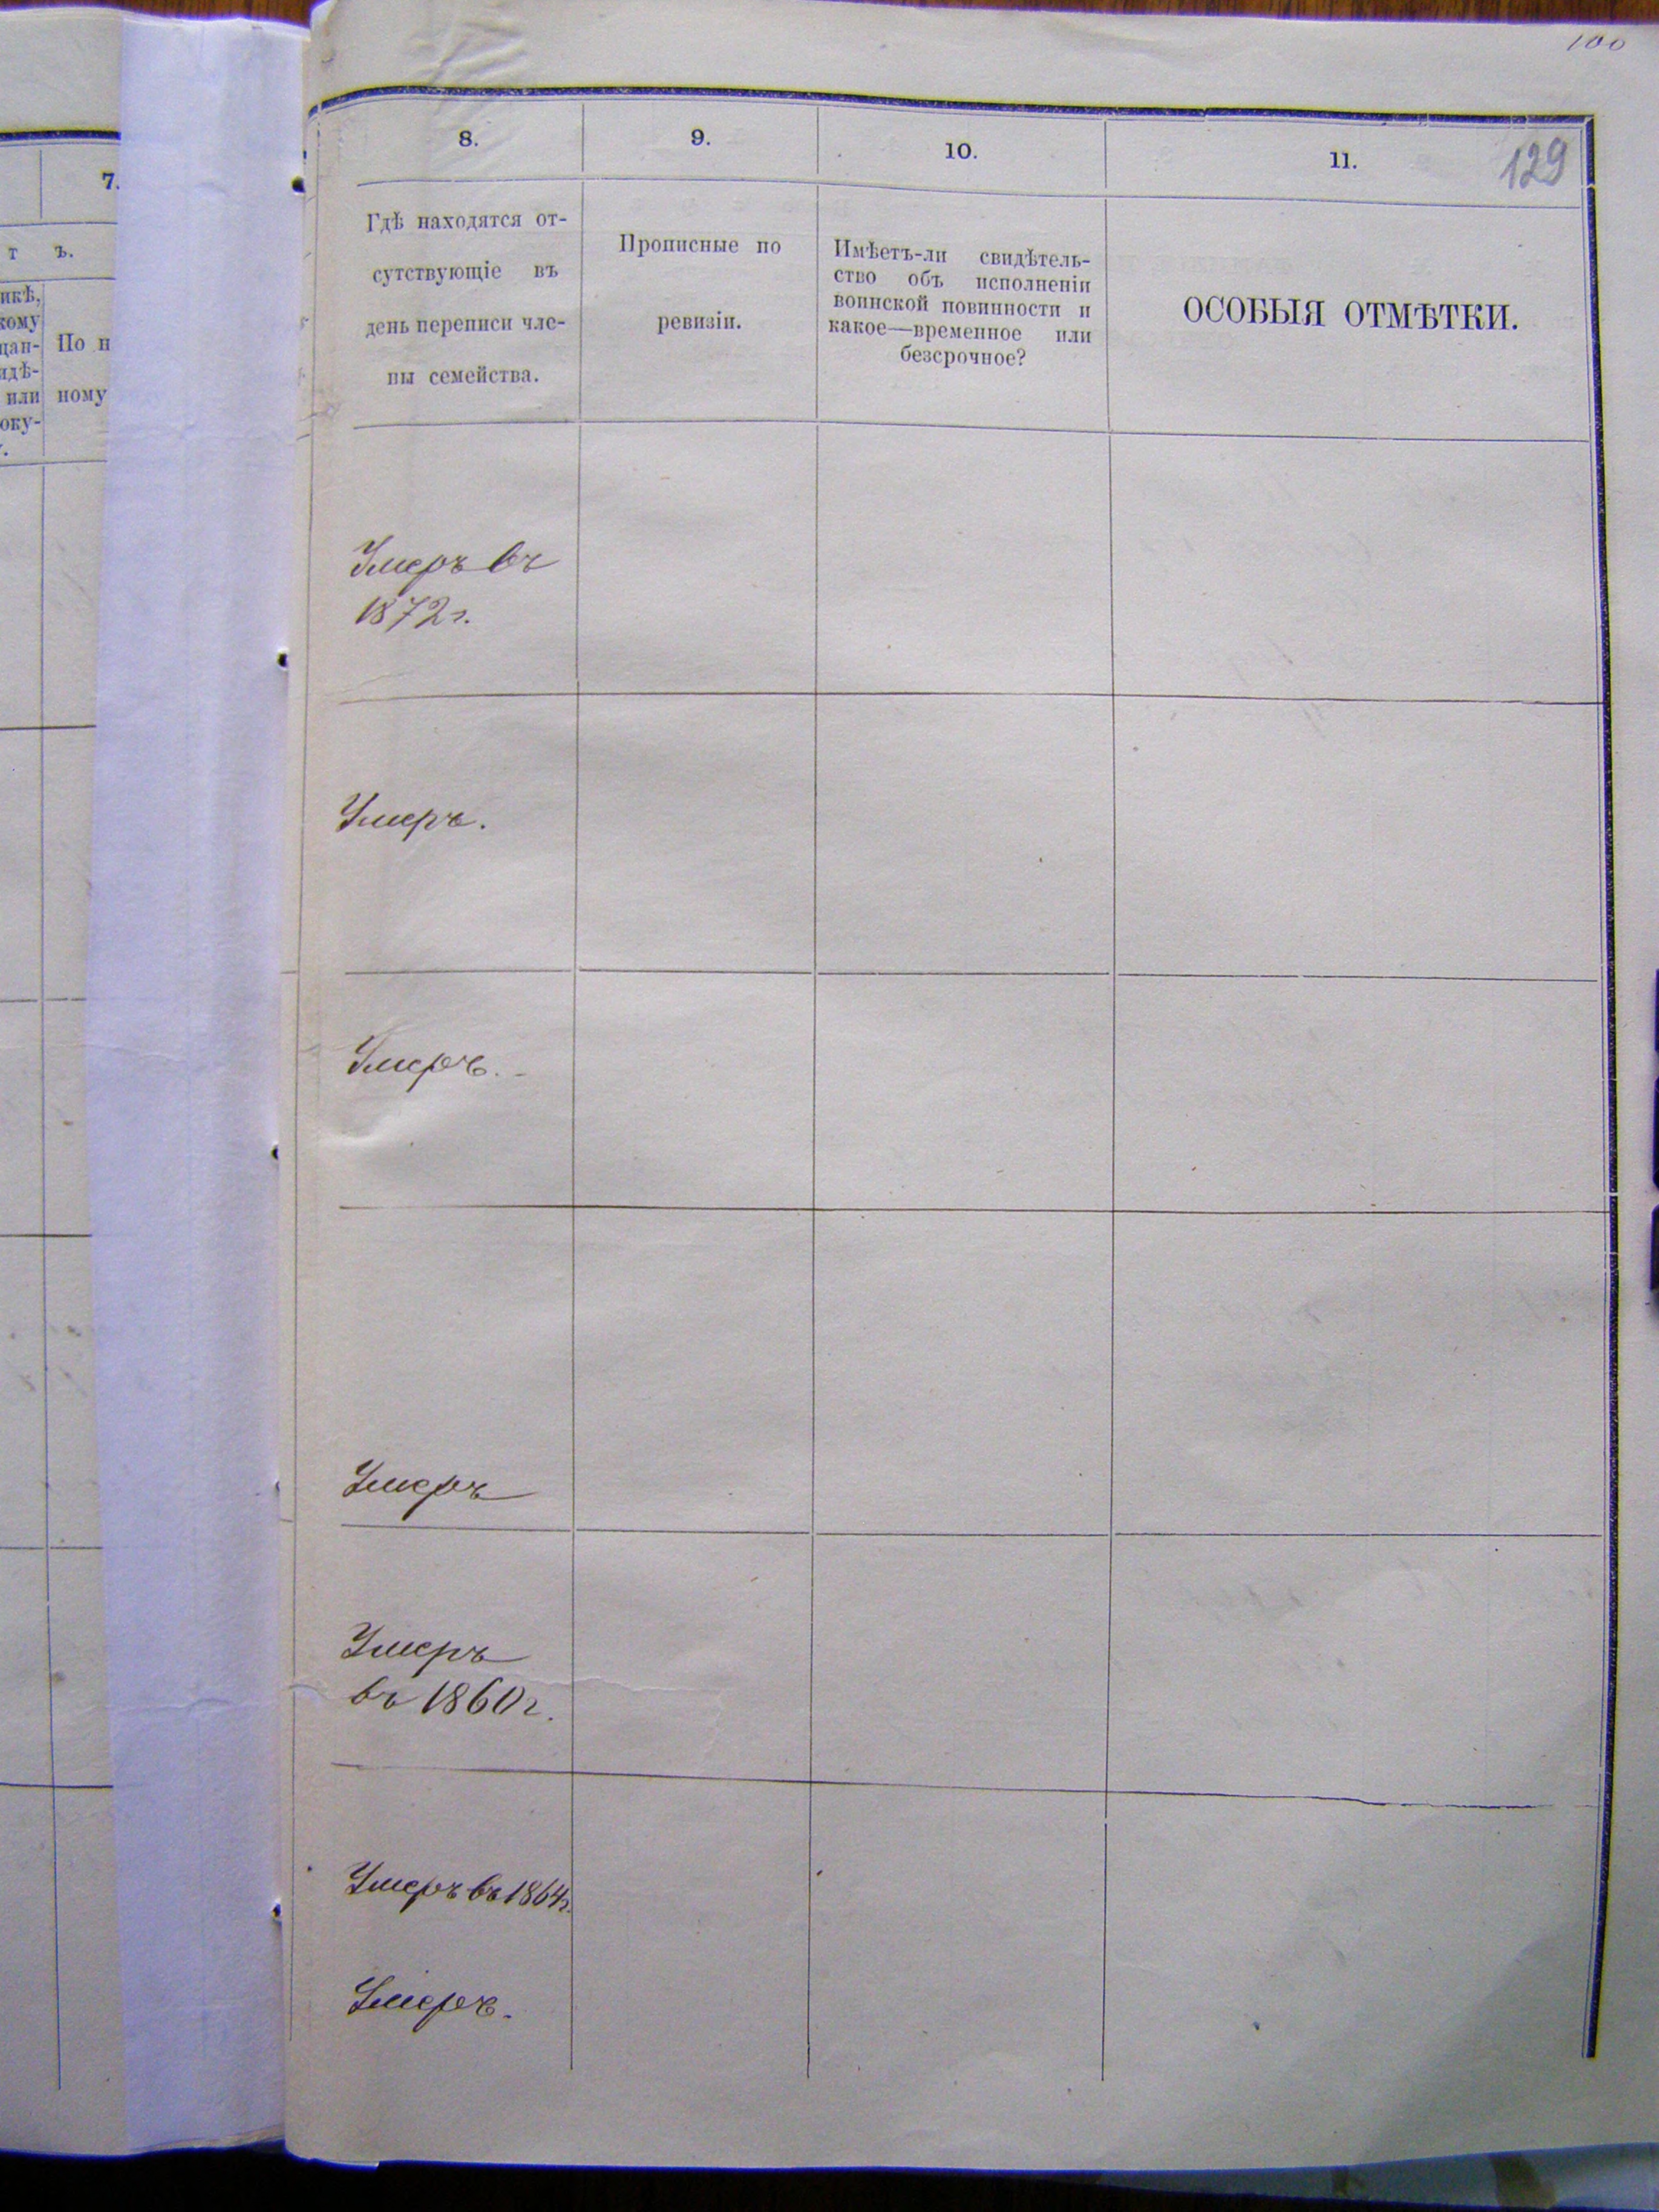 100
129
7.
т ъ.
икѣ,
кому
цан-
идѣ-
или
оку-
По н
ному
8.
9.
10.
11.
Гдѣ находятся от-
сутствующіе въ
день переписи чле-
ны семейства.
Прописные по
ревизіи.
Имѣетъ-ли свидѣтель-
ство объ исполненіи
воинской повинности и
какое—временное или
безсрочное?
ОСОБЫЯ ОТМѢТКИ.
Умеръ въ
1872 г.
Умеръ.
Умеръ.
Умеръ
Умеръ
въ 1860 г.
Умеръ въ 1864 г.
Умеръ.